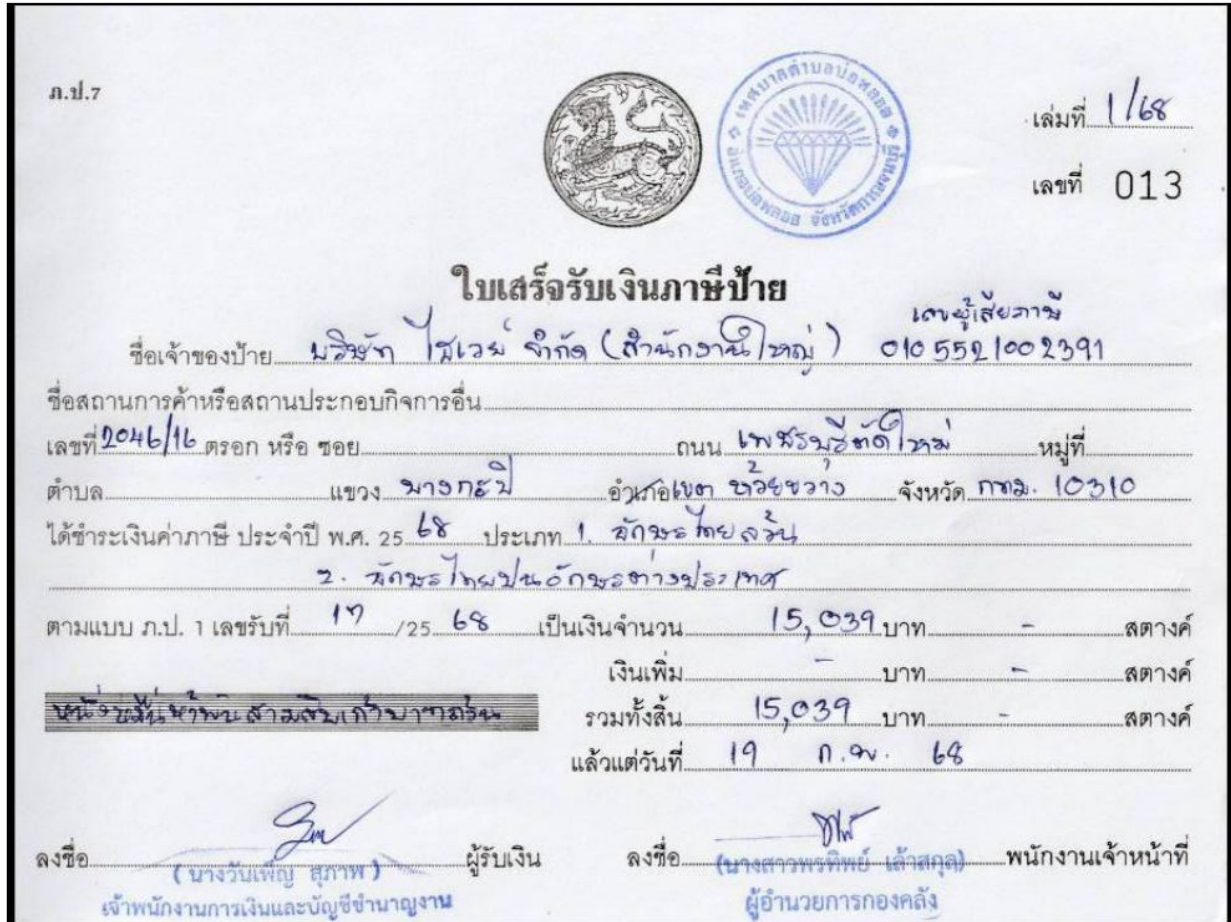 ภ.ป.7
เทศบาลตำบลบ่อพลอย
อำเภอบ่อพลอย จังหวัดกาญจนบุรี
เล่มที่ 1/68
เลขที่ 013
ใบเสร็จรับเงินภาษีป้าย
เลขผู้เสียภาษี
ชื่อเจ้าของป้าย บริษัท ไฮเวย์ จำกัด (สำนักงานใหญ่) 0105521002391
ชื่อสถานการค้าหรือสถานประกอบกิจการอื่น
เลขที่ 2046/16 ตรอก หรือ ซอย ถนน เพชรบุรีตัดใหม่ หมู่ที่
ตำบล แขวง บางกะปิ อำเภอ เขต ห้วยขวาง จังหวัด กทม. 10310
ได้ชำระเงินค่าภาษี ประจำปี พ.ศ. 25 68 ประเภท 1. อักษรไทยล้วน
2. อักษรไทยปนอักษรต่างประเทศ
ตามแบบ ภ.ป. 1 เลขรับที่ 17 /25 68 เป็นเงินจำนวน 15,039 บาท - สตางค์
เงินเพิ่ม - บาท - สตางค์
หนึ่งหมื่นห้าพันสามสิบเก้าบาทถ้วน รวมทั้งสิ้น 15,039 บาท - สตางค์
แล้วแต่วันที่ 19 ก.พ. 68
ลงชื่อ ผู้รับเงิน ลงชื่อ พนักงานเจ้าหน้าที่
(นางวันเพ็ญ สุภาพ) (นางสาวพรทิพย์ เล้าสกุล)
เจ้าพนักงานการเงินและบัญชีชำนาญงาน ผู้อำนวยการกองคลัง